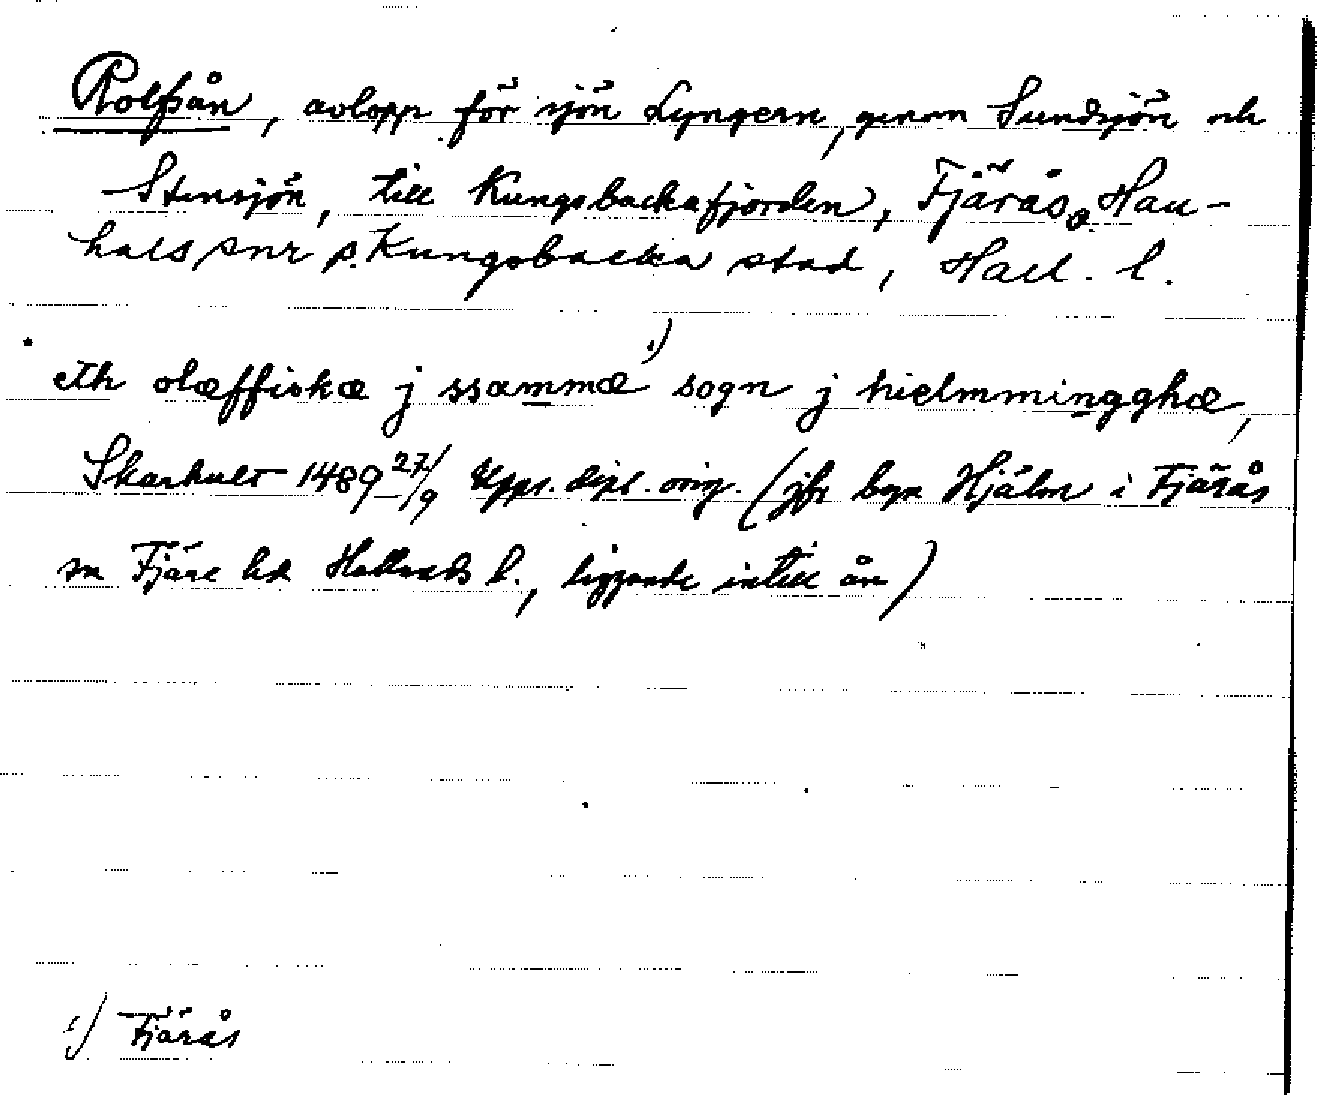 Rolfsån, avlopp för sjön Lyngern, genom Sundsjön och
Stensjön, till Kungsbackafjorden, Fjärås o. Han-
hals snr o. Kungsbacka stad, Hall. l.
eth olæffiskæ j ssammæ 1) sogn j hielmmingghæ,
Skarhult 1489 27/9 Upps. dipl. orig. (jfr byn Hjälm i Fjärås
sn Fjäre hd Hallands l., liggande intill ån)
1) Fjärås